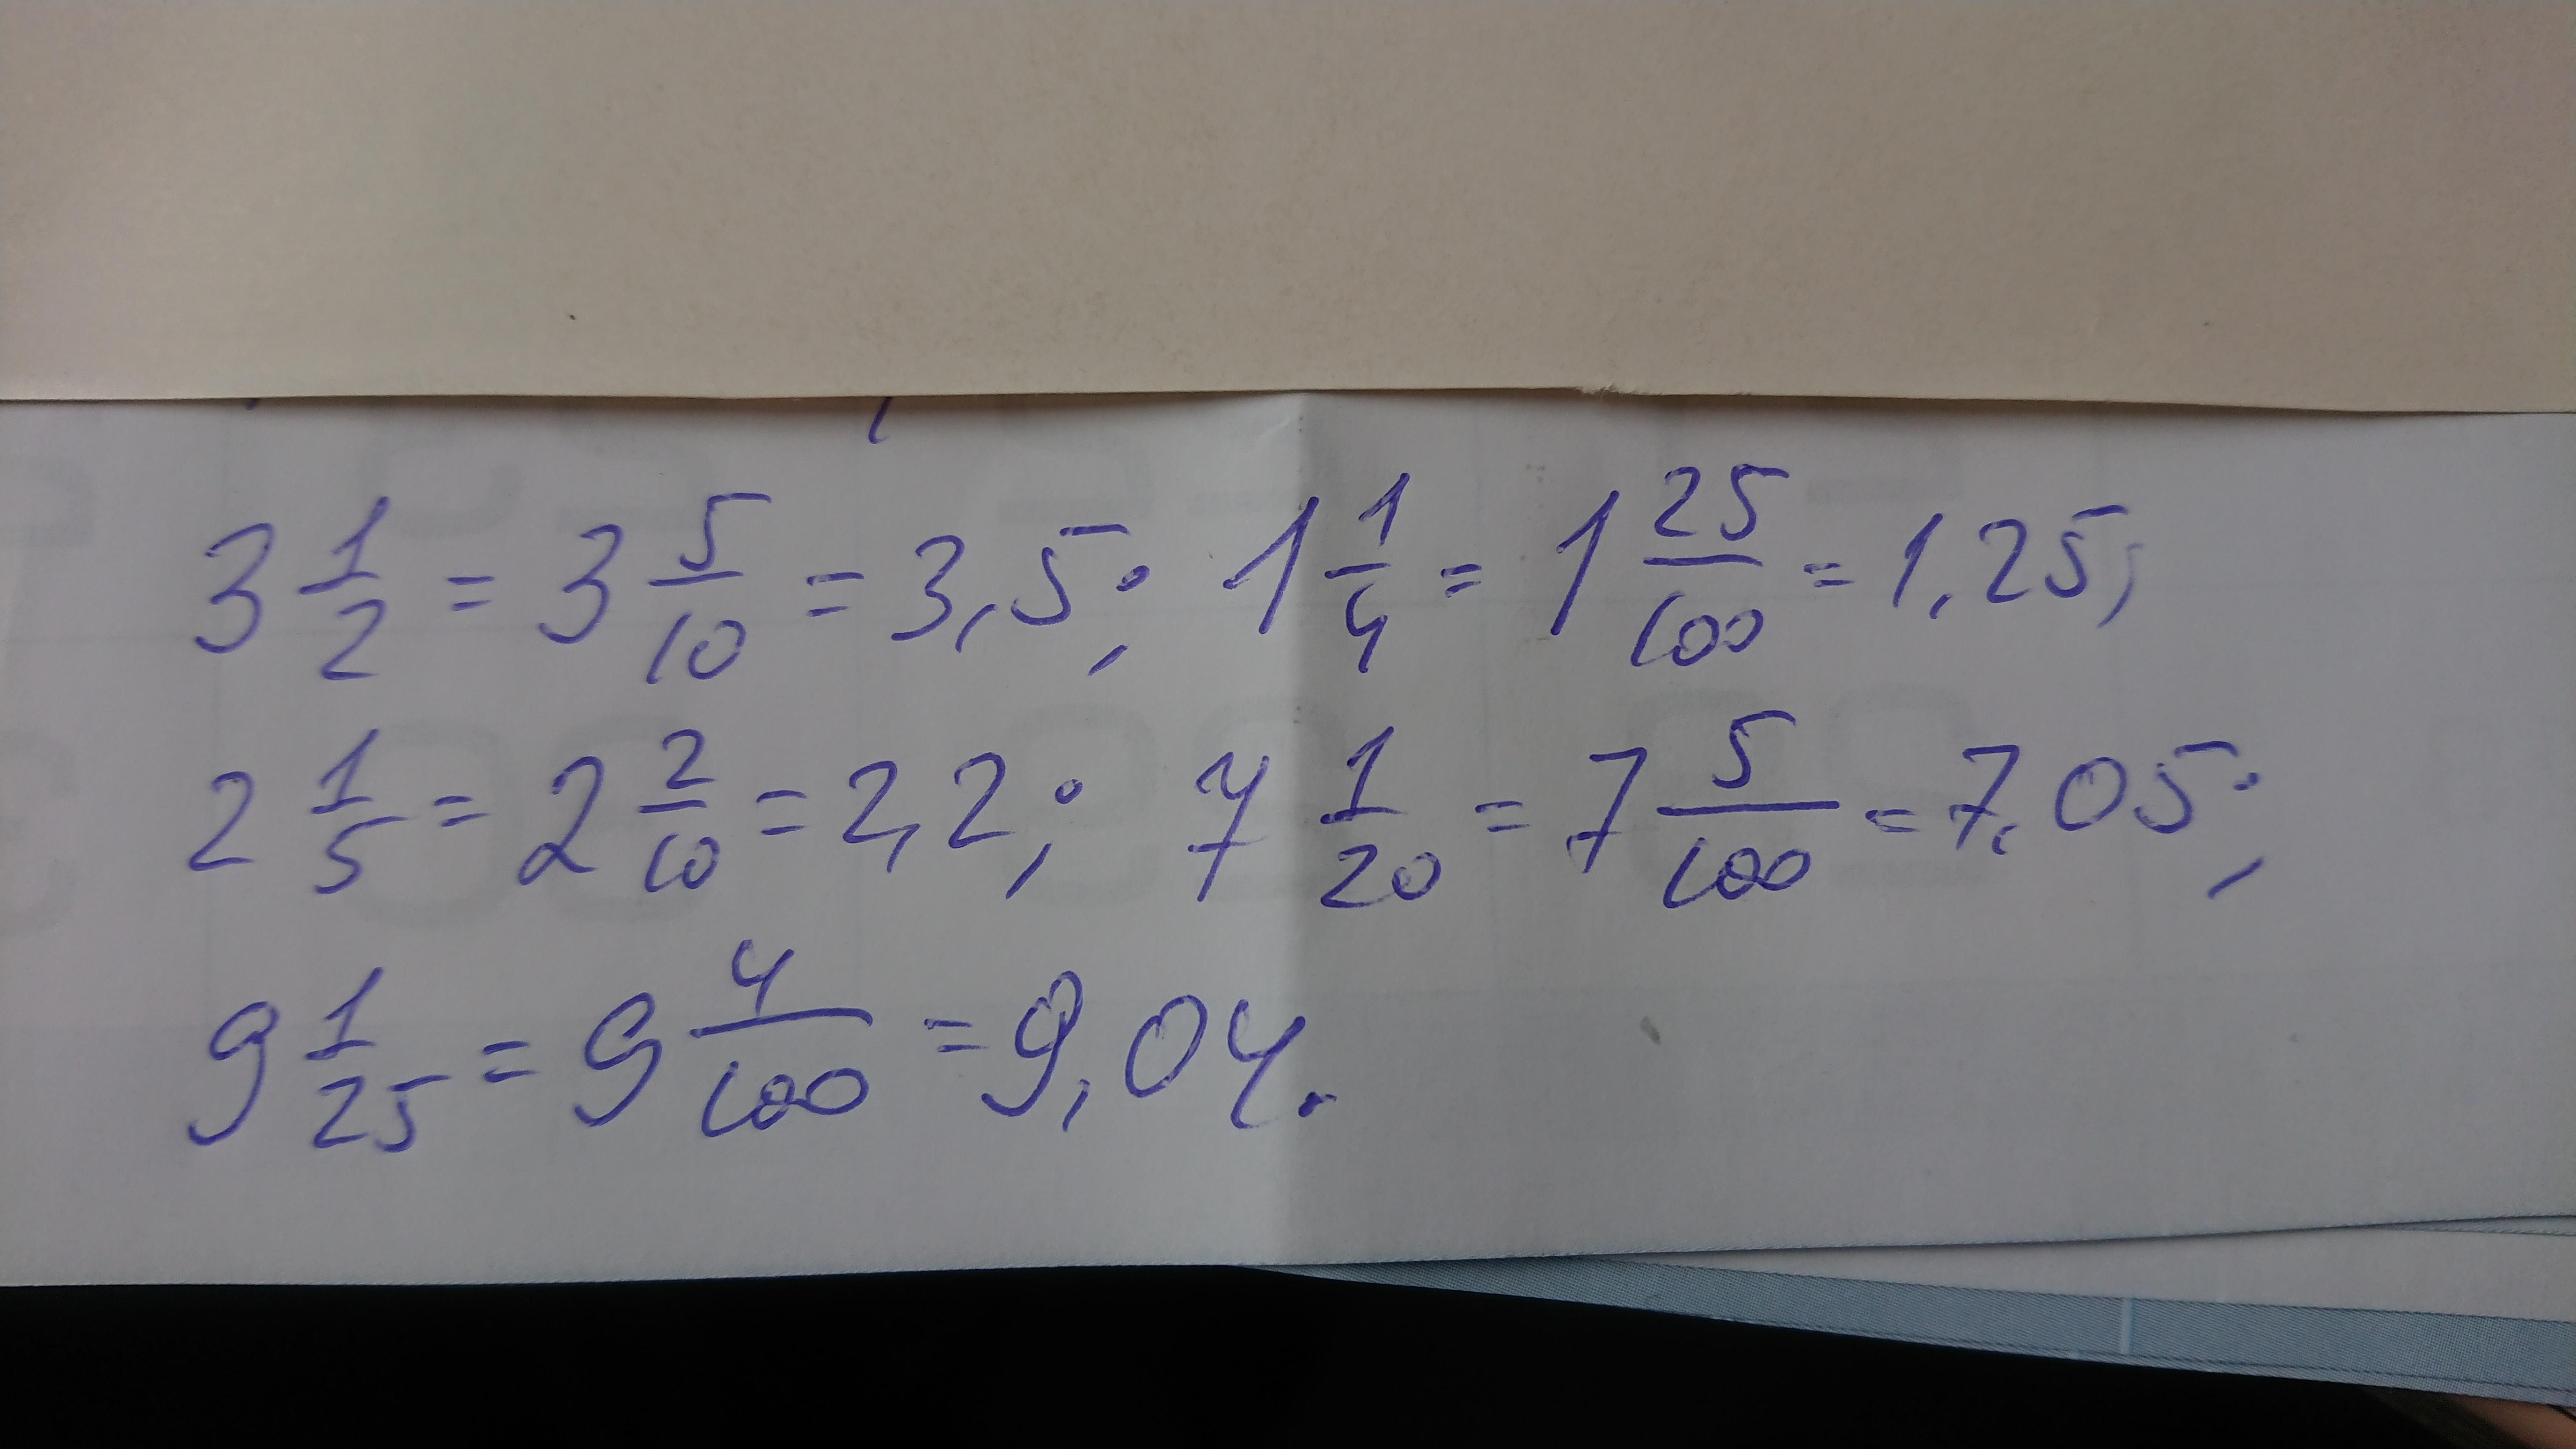 3 1/2 = 3 5/10 = 3,5; 1 1/4 = 1 25/100 = 1,25;
2 1/5 = 2 2/10 = 2,2; 7 1/20 = 7 5/100 = 7,05;
9 1/25 = 9 4/100 = 9,04.